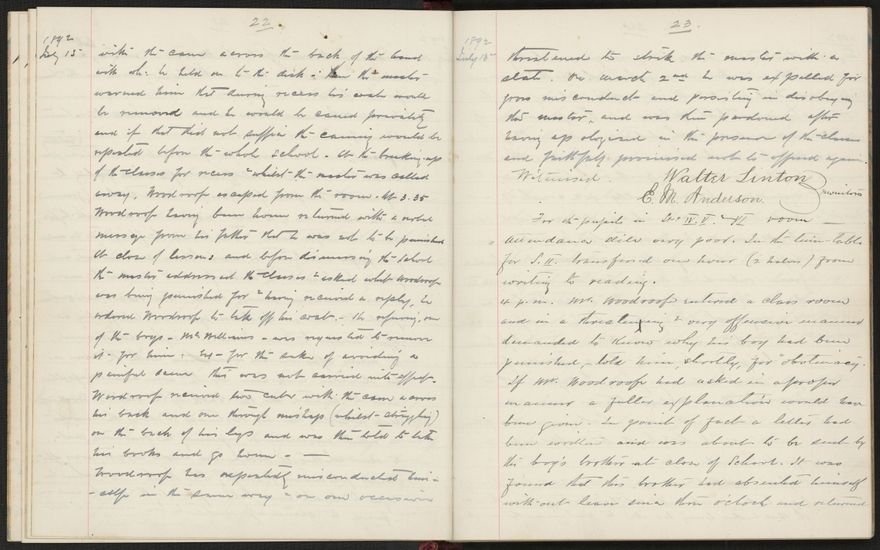 22
1892
July 15
with the cane across the back of the hand
with wh. he held on to the desk; the master
warned him that during recess his coat would
be removed and he would be caned privately
and if that did not suffice the caning would be
repeated before the whole School. At the breaking-up
of the classes for recess & whilst the master was called
away, Woodroof escaped from the room. At 3.35
Woodroof having been home returned with a verbal
message from his father that he was not to be punished
At close of lessons and before dismissing the School
the master addressed the classes & asked what Woodroof
was being punished for & having received a reply, he
ordered Woodroof to take off his coat. He refusing, one
of the boys - McWilliams - was requested to remove
it for him; but for the sake of avoiding a
painful scene this was not carried into effect.
Woodroof received two cuts with the cane across
his back and one through mishap (whilst struggling)
on the back of his legs and was then told to take
his books and go home. —
Woodroof has repeatedly misconducted him-
-self in the same way & on one occasion
23
1892
July 15
threatened to strike the master with a
slate. On March 2nd he was expelled for
gross misconduct and persisting in disobeying
the master, and was then pardoned after
having apologised in the presence of the classes
and faithfully promised not to offend again.
Witnessed Walter Linton
E. M. Anderson witnesses
For the pupils in Sts IV. V. & VI room —
Attendance also very poor. In the time table
for S. II. transferred one hour (2 halves) from
writing to reading.
4 p.m. Mr. Woodroof entered a class room
and in a threatening & very offensive manner
demanded to know why his boy had been
punished, told him, shortly, for obstinacy.
If Mr. Woodroof had asked in a proper
manner a fuller explanation would have
been given. In point of fact a letter had
been written and was about to be sent by
the boy's brother at close of School. It was
found that this brother had absented himself
without leave since three o'clock and returned